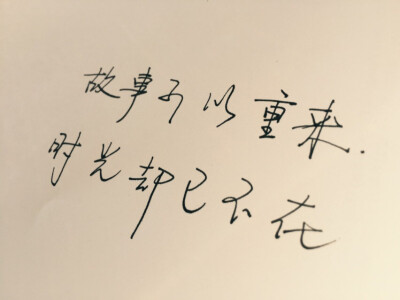 故事可以重来.
时光却已不在